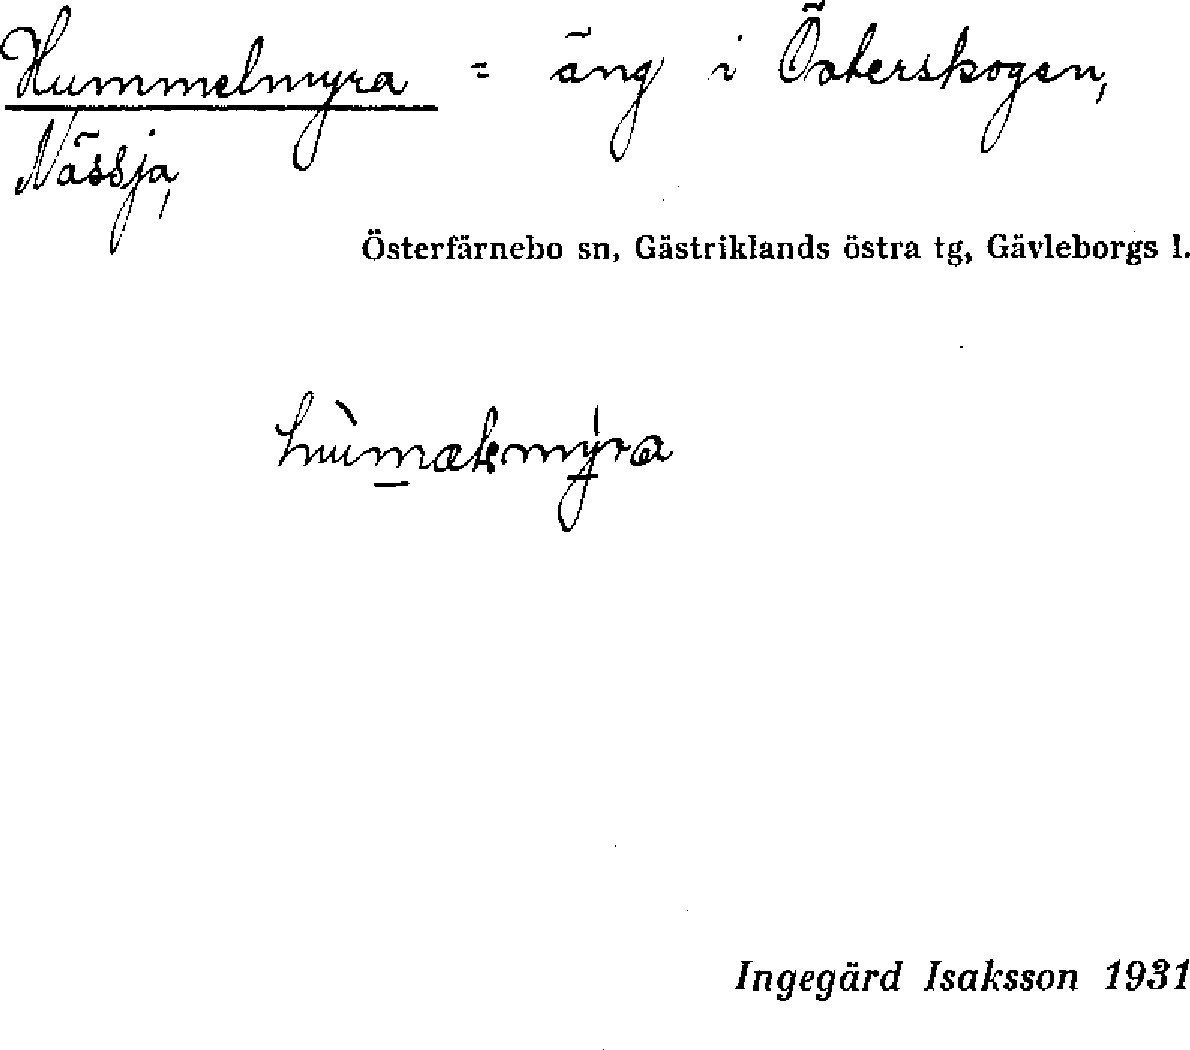 Hummelmyra = äng i Österskogen,
Nässja,
Österfärnebo sn, Gästriklands östra tg, Gävleborgs l.
Ingegärd Isaksson 1931